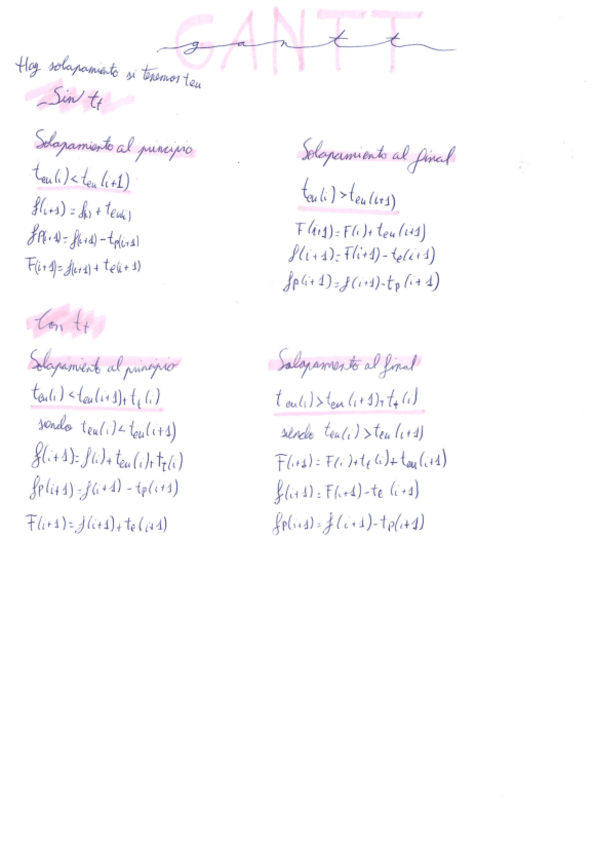 GANTT
gantt
Hay solapamiento si tenemos teu
Sin tt
Solapamiento al principio
teu(i)<teu(i+1)
f(i+1)=f(i)+teu(i)
fp(i+1)=f(i+1)-tp(i+1)
F(i+1)=f(i+1)+te(i+1)
Solapamiento al final
teu(i)>teu(i+1)
F(i+1)=F(i)+teu(i+1)
f(i+1)=F(i+1)-te(i+1)
fp(i+1)=f(i+1)-tp(i+1)
Con tt
Solapamiento al principio
teu(i)<teu(i+1)+tt(i)
sendo teu(i)<teu(i+1)
f(i+1)=f(i)+teu(i)+tt(i)
fp(i+1)=f(i+1)-tp(i+1)
F(i+1)=f(i+1)+te(i+1)
Solapamento al final
teu(i)>teu(i+1)+tt(i)
siendo teu(i)>teu(i+1)
F(i+1)=F(i)+tt(i)+teu(i+1)
f(i+1)=F(i+1)-te(i+1)
fp(i+1)=f(i+1)-tp(i+1)